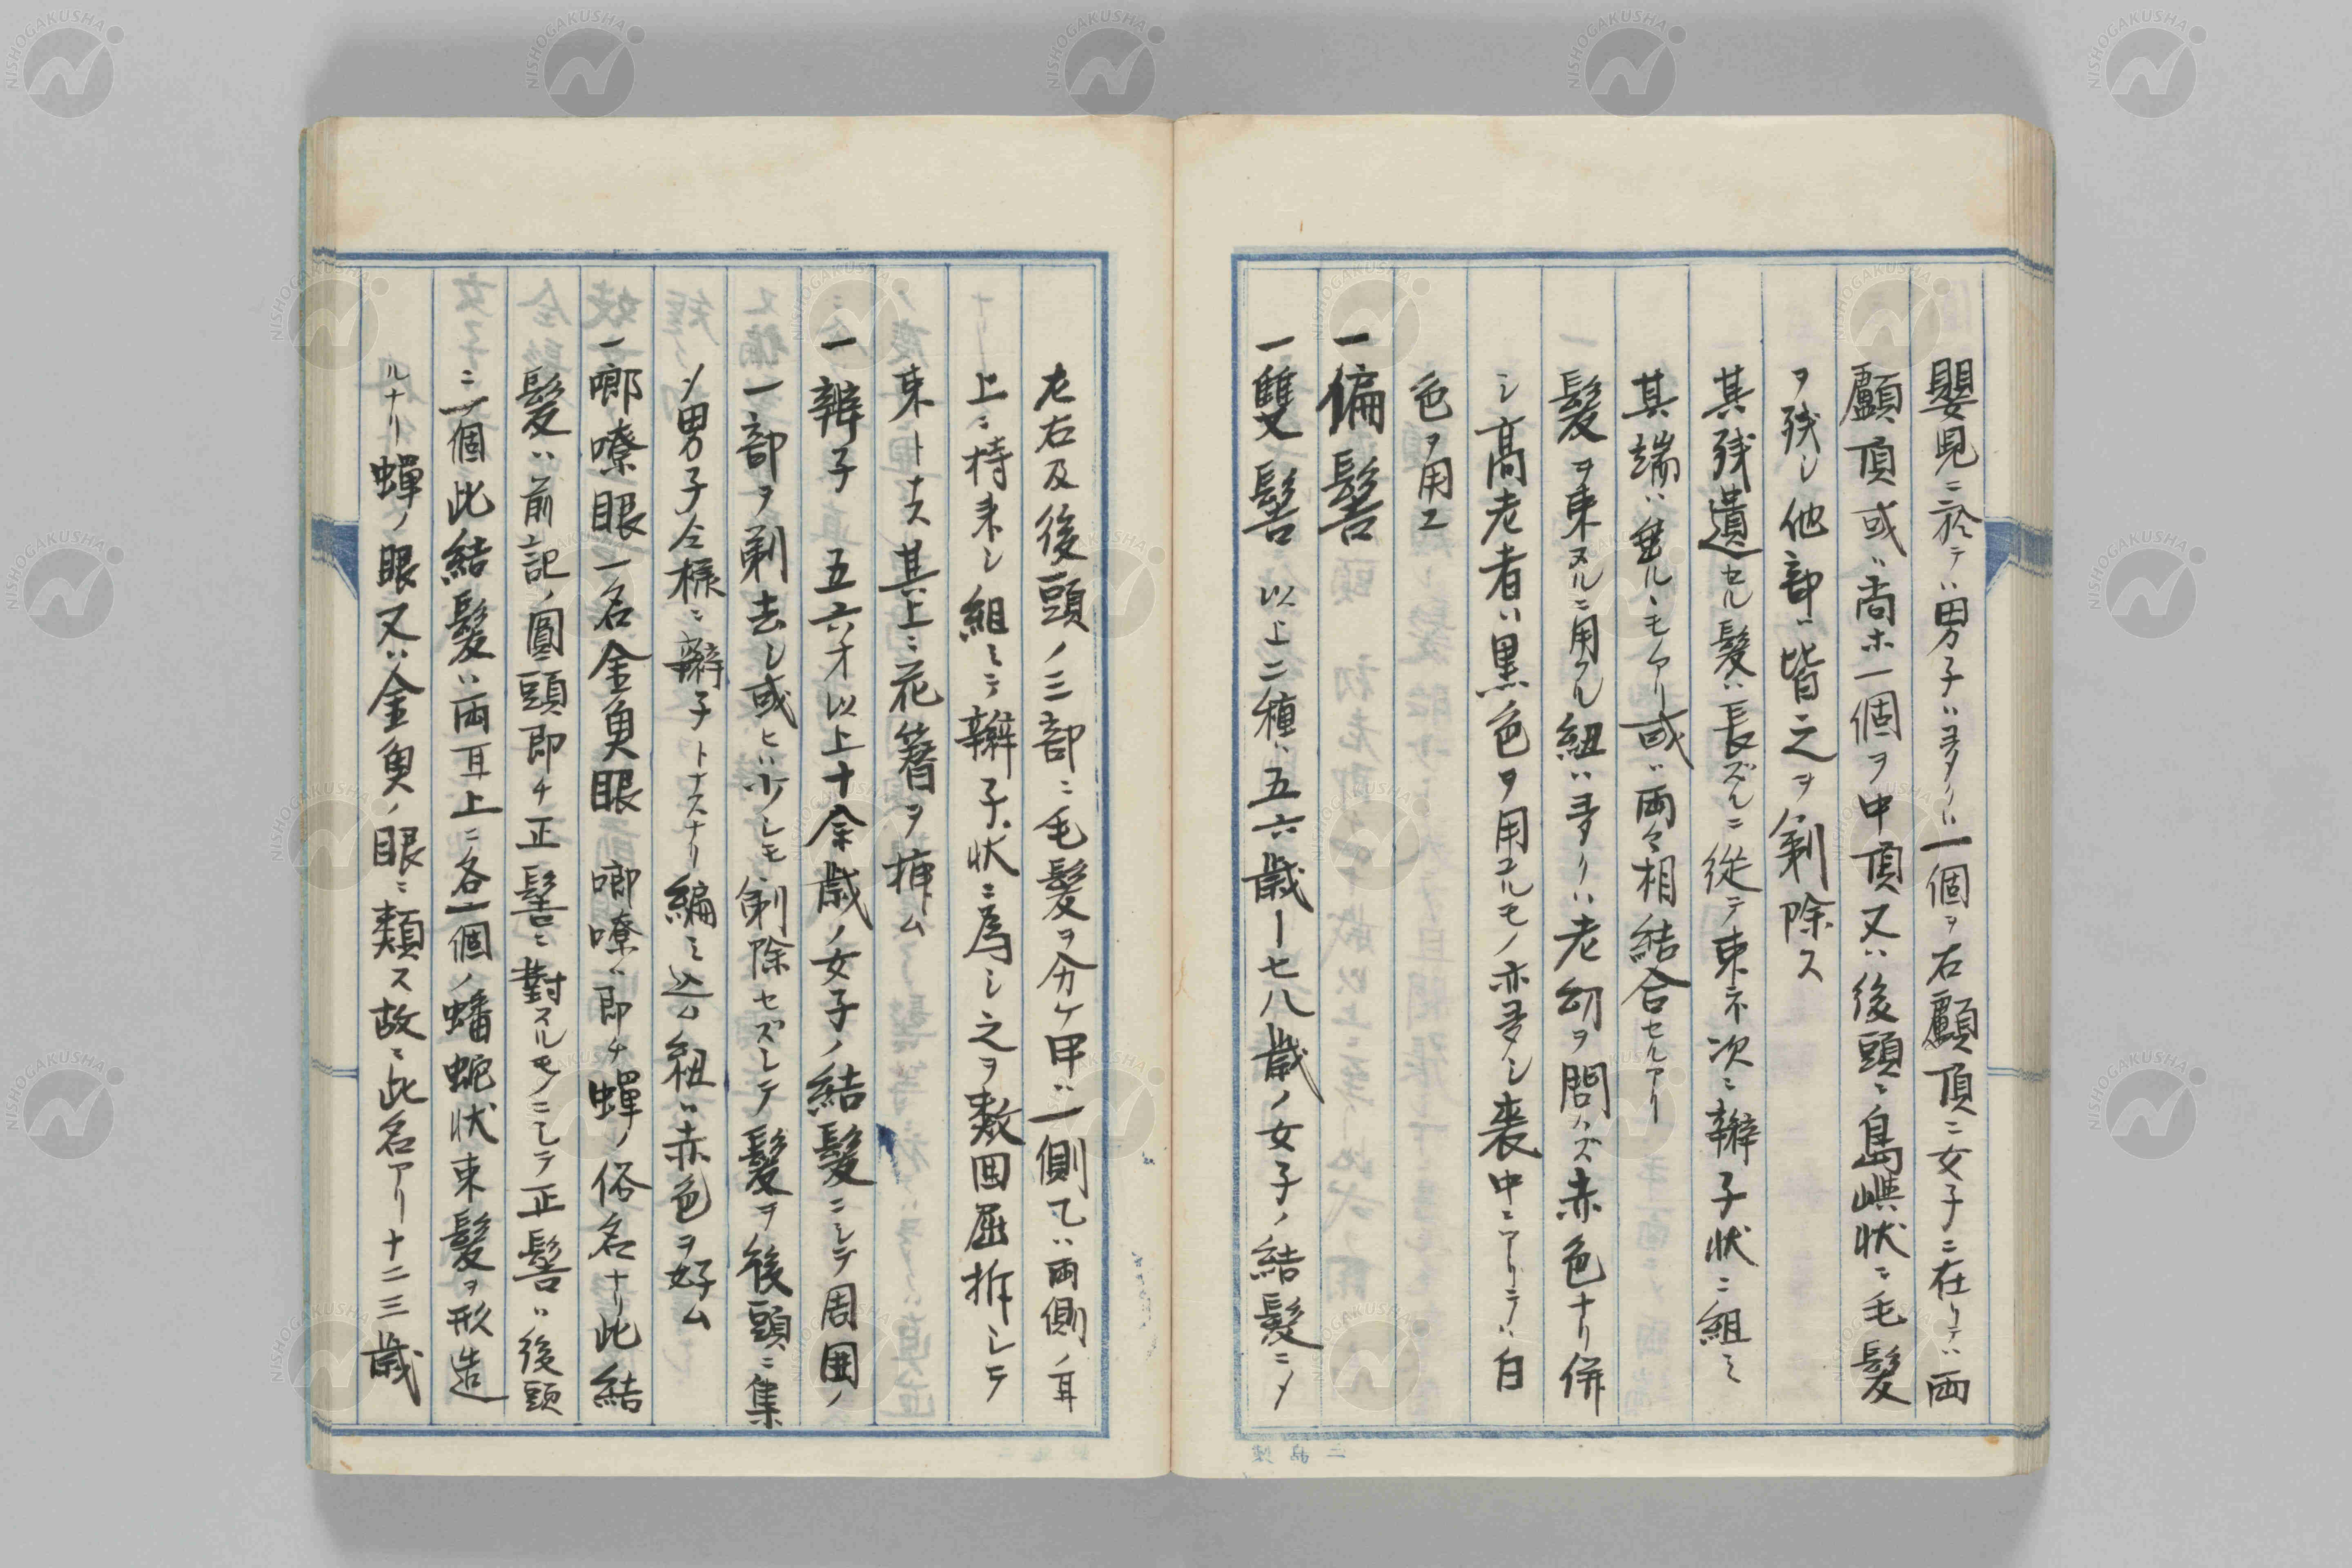 嬰児ニ於テハ男子ハ多クハ一個ヲ右顱頂ニ女子ニ在リテハ両
顱頂或ハ尚ホ一個ヲ中頂又ハ後頭ニ島嶼状ニ毛髪
ヲ残シ他部ハ皆之ヲ剃除ス
其残遺セル髪ハ長ズルニ従テ束ネ次ニ辮子状ニ組ミ
其端ハ垂ルヽモアリ或ハ両々相結合セルアリ
一髪ヲ束ヌルニ用フル紐ハ多クハ老幼ヲ問ハズ赤色ナリ併
シ高老者ハ黒色ヲ用ユルモノ亦多シ喪中ニアリテハ白
色ヲ用ユ
一偏髻
一雙髻 以上二種ハ五六歳ー七八歳ノ女子ノ結髪ニメ
左右及後頭ノ三部ニ毛髪ヲ分ケ甲ハ一側乙ハ両側ノ耳
上ニ持来シ組ミテ辮子状ニ為シ之ヲ数回屈折シテ
束トナス其上ニ花簪ヲ挿ム
一辮子 五六才以上十余歳ノ女子ノ結髪ニシテ周囲ノ
一部ヲ剃去シ或ヒハ少シモ剃除セズシテ髪ヲ後頭ニ集
メ男子仝様ニ辮子トナスナリ編ミ込ム紐ハ赤色ヲ好ム
一唧嘹眼一名金魚眼 唧嘹ハ即チ蟬ノ俗名ナリ此結
髪ハ前記ノ圓頭即チ正髻ニ對スルモノニシテ正髻ハ後頭
ニ一個此結髪ハ両耳上ニ各一個ノ蟠蛇状束髪ヲ形造
ルナリ蟬ノ眼又ハ金魚ノ眼ニ類ス故ニ此名アリ十二三歳
NISHOGAKUSHA